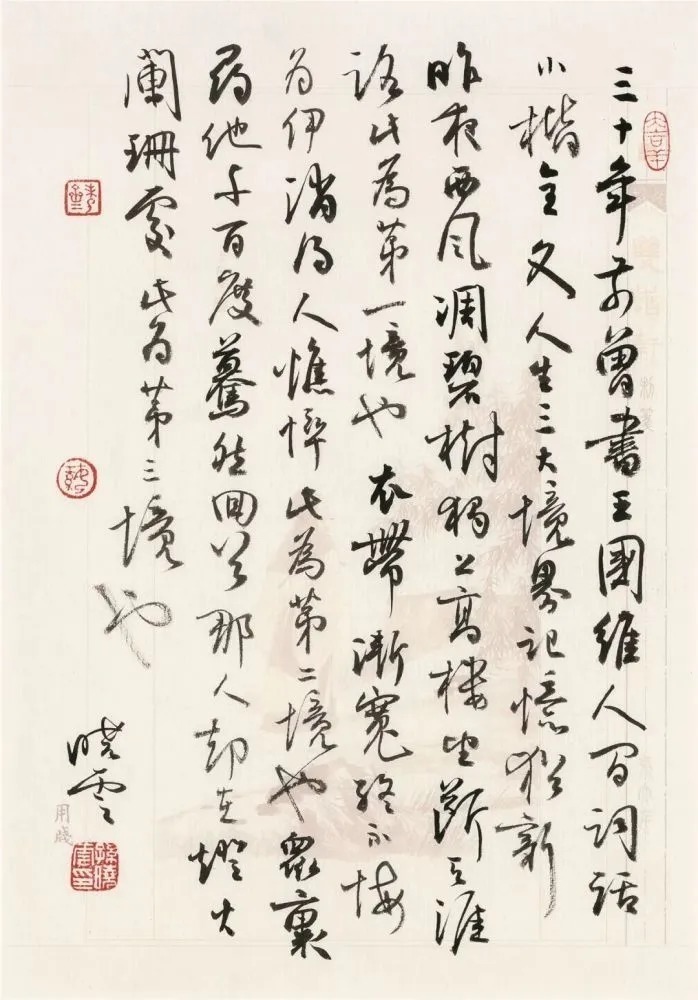 三十年前曾書王國維人間詞話
小楷全文人生三大境界記憶猶新
昨夜西風凋碧樹獨上高樓望斷天涯
路此為第一境也衣帶漸寬終不悔
為伊消得人憔悴此為第二境也眾裏
尋他千百度驀然回首那人却在燈火
闌珊處此為第三境也
曉雲
用箋
孫曉雲印